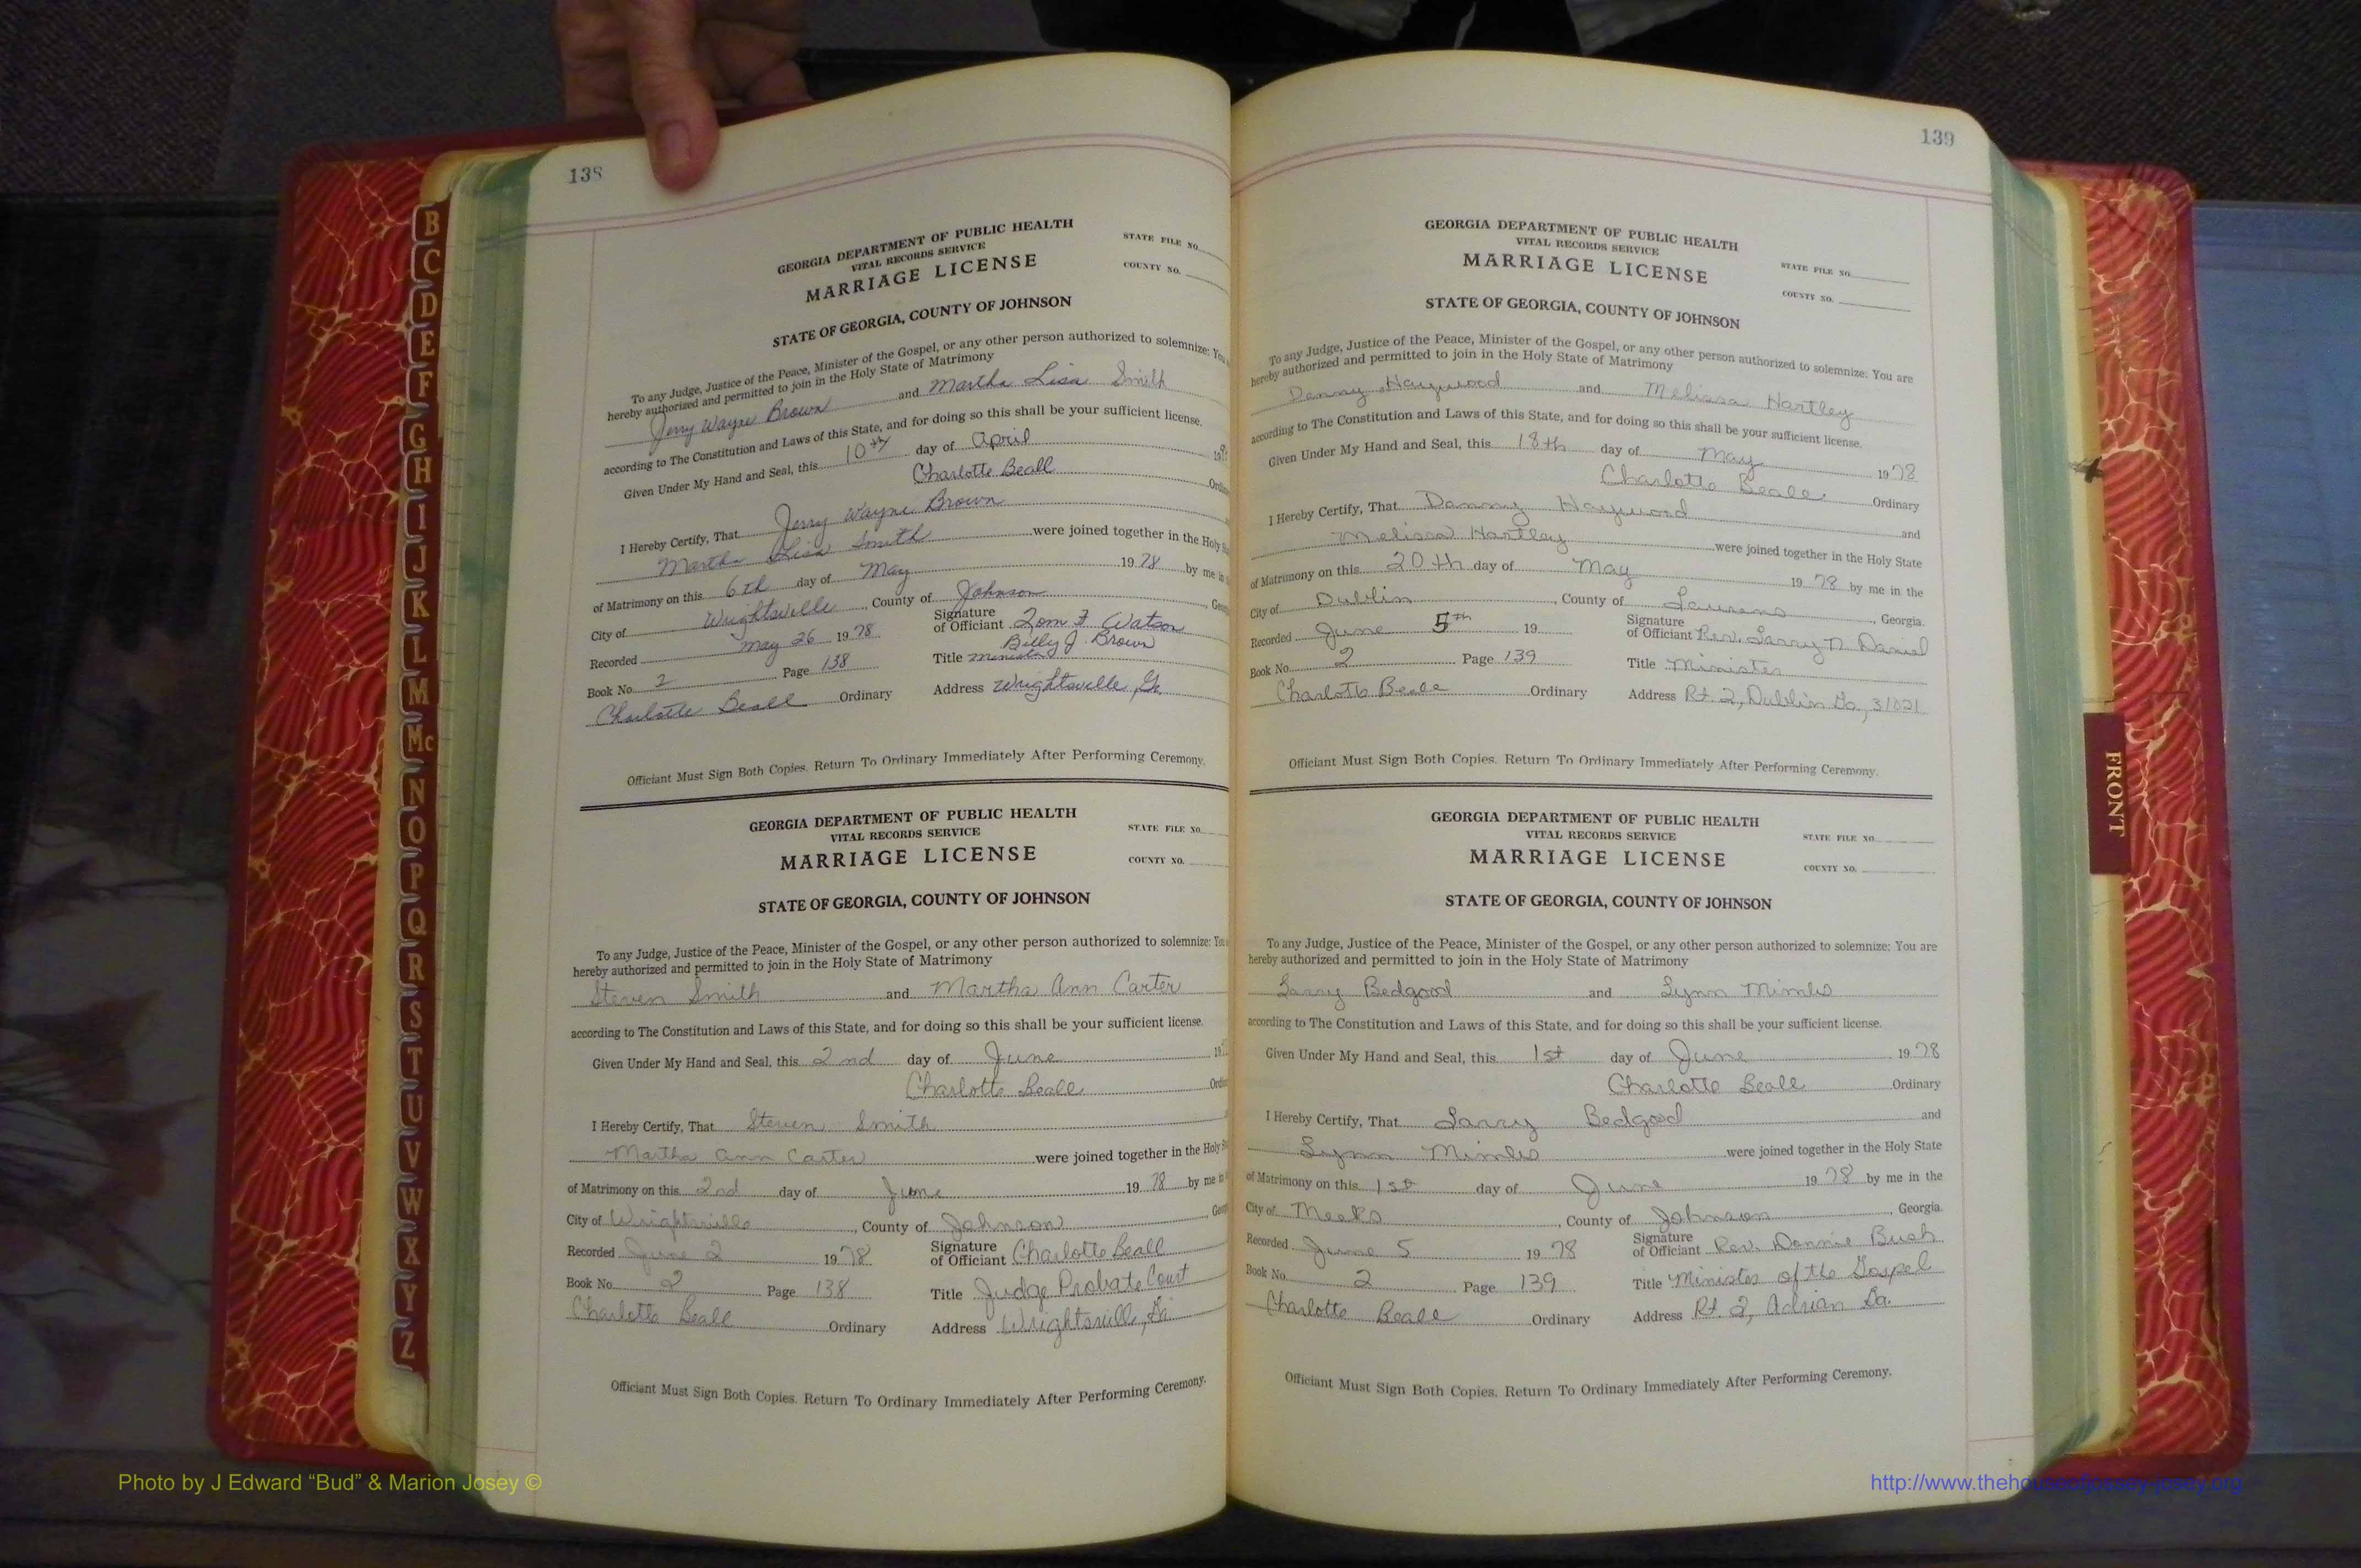 138
GEORGIA DEPARTMENT OF PUBLIC HEALTH
VITAL RECORDS SERVICE
MARRIAGE LICENSE
STATE FILE NO.
COUNTY NO.
STATE OF GEORGIA, COUNTY OF JOHNSON
To any Judge, Justice of the Peace, Minister of the Gospel, or any other person authorized to solemnize: You
hereby authorized and permitted to join in the Holy State of Matrimony
Jerry Wayne Brown and Martha Lisa Smith
according to The Constitution and Laws of this State, and for doing so this shall be your sufficient license.
Given Under My Hand and Seal, this 10th day of April 19
Charlotte Beall
I Hereby Certify, That Jerry Wayne Brown
Martha Lisa Smith were joined together in the Holy
of Matrimony on this 6th day of May 1978 by me in
City of Wrightsville, County of Johnson
Recorded May 26 1978 Signature of Officiant Tom F Watson
Billy J. Brown
Book No. 2 Page 138 Title Minister
Charlotte Beall Ordinary Address Wrightsville, Ga.
Officiant Must Sign Both Copies. Return To Ordinary Immediately After Performing Ceremony.
GEORGIA DEPARTMENT OF PUBLIC HEALTH
VITAL RECORDS SERVICE
MARRIAGE LICENSE
STATE FILE NO.
COUNTY NO.
STATE OF GEORGIA, COUNTY OF JOHNSON
To any Judge, Justice of the Peace, Minister of the Gospel, or any other person authorized to solemnize: You
hereby authorized and permitted to join in the Holy State of Matrimony
Steven Smith and Martha Ann Carter
according to The Constitution and Laws of this State, and for doing so this shall be your sufficient license.
Given Under My Hand and Seal, this 2nd day of June 19
Charlotte Beall
I Hereby Certify, That Steven Smith
Martha Ann Carter were joined together in the Holy
of Matrimony on this 2nd day of June 1978 by me in
City of Wrightsville, County of Johnson
Recorded June 2 1978 Signature of Officiant Charlotte Beall
Book No. 2 Page 138 Title Judge Probate Court
Charlotte Beall Ordinary Address Wrightsville, Ga.
Officiant Must Sign Both Copies. Return To Ordinary Immediately After Performing Ceremony.
139
GEORGIA DEPARTMENT OF PUBLIC HEALTH
VITAL RECORDS SERVICE
MARRIAGE LICENSE
STATE FILE NO.
COUNTY NO.
STATE OF GEORGIA, COUNTY OF JOHNSON
To any Judge, Justice of the Peace, Minister of the Gospel, or any other person authorized to solemnize: You are
hereby authorized and permitted to join in the Holy State of Matrimony
Danny Haywood and Melissa Hartley
according to The Constitution and Laws of this State, and for doing so this shall be your sufficient license.
Given Under My Hand and Seal, this 18th day of May 1978
Charlotte Beall Ordinary
I Hereby Certify, That Danny Haywood and
Melissa Hartley were joined together in the Holy State
of Matrimony on this 20th day of May 1978 by me in the
City of Dublin, County of Laurens, Georgia.
Recorded June 5th 19 Signature of Officiant Rev. Larry N. Daniel
Book No. 2 Page 139 Title Minister
Charlotte Beall Ordinary Address Rt. 2, Dublin Ga, 31021
Officiant Must Sign Both Copies. Return To Ordinary Immediately After Performing Ceremony.
GEORGIA DEPARTMENT OF PUBLIC HEALTH
VITAL RECORDS SERVICE
MARRIAGE LICENSE
STATE FILE NO.
COUNTY NO.
STATE OF GEORGIA, COUNTY OF JOHNSON
To any Judge, Justice of the Peace, Minister of the Gospel, or any other person authorized to solemnize: You are
hereby authorized and permitted to join in the Holy State of Matrimony
Larry Bedgood and Lynn Mimbs
according to The Constitution and Laws of this State, and for doing so this shall be your sufficient license.
Given Under My Hand and Seal, this 1st day of June 1978
Charlotte Beall Ordinary
I Hereby Certify, That Larry Bedgood and
Lynn Mimbs were joined together in the Holy State
of Matrimony on this 1st day of June 1978 by me in the
City of Meeks, County of Johnson, Georgia.
Recorded June 5 1978 Signature of Officiant Rev. Donnie Bush
Book No. 2 Page 139 Title Minister of the Gospel
Charlotte Beall Ordinary Address Rt. 2, Adrian Ga.
Officiant Must Sign Both Copies. Return To Ordinary Immediately After Performing Ceremony.
B
C
D
E
F
G
H
I
J
K
L
M
Mc
N
O
P
Q
R
S
T
U
V
W
X
Y
Z
FRONT
Photo by J Edward “Bud” & Marion Josey ©
http://www.thehouseofjossey-josey.org